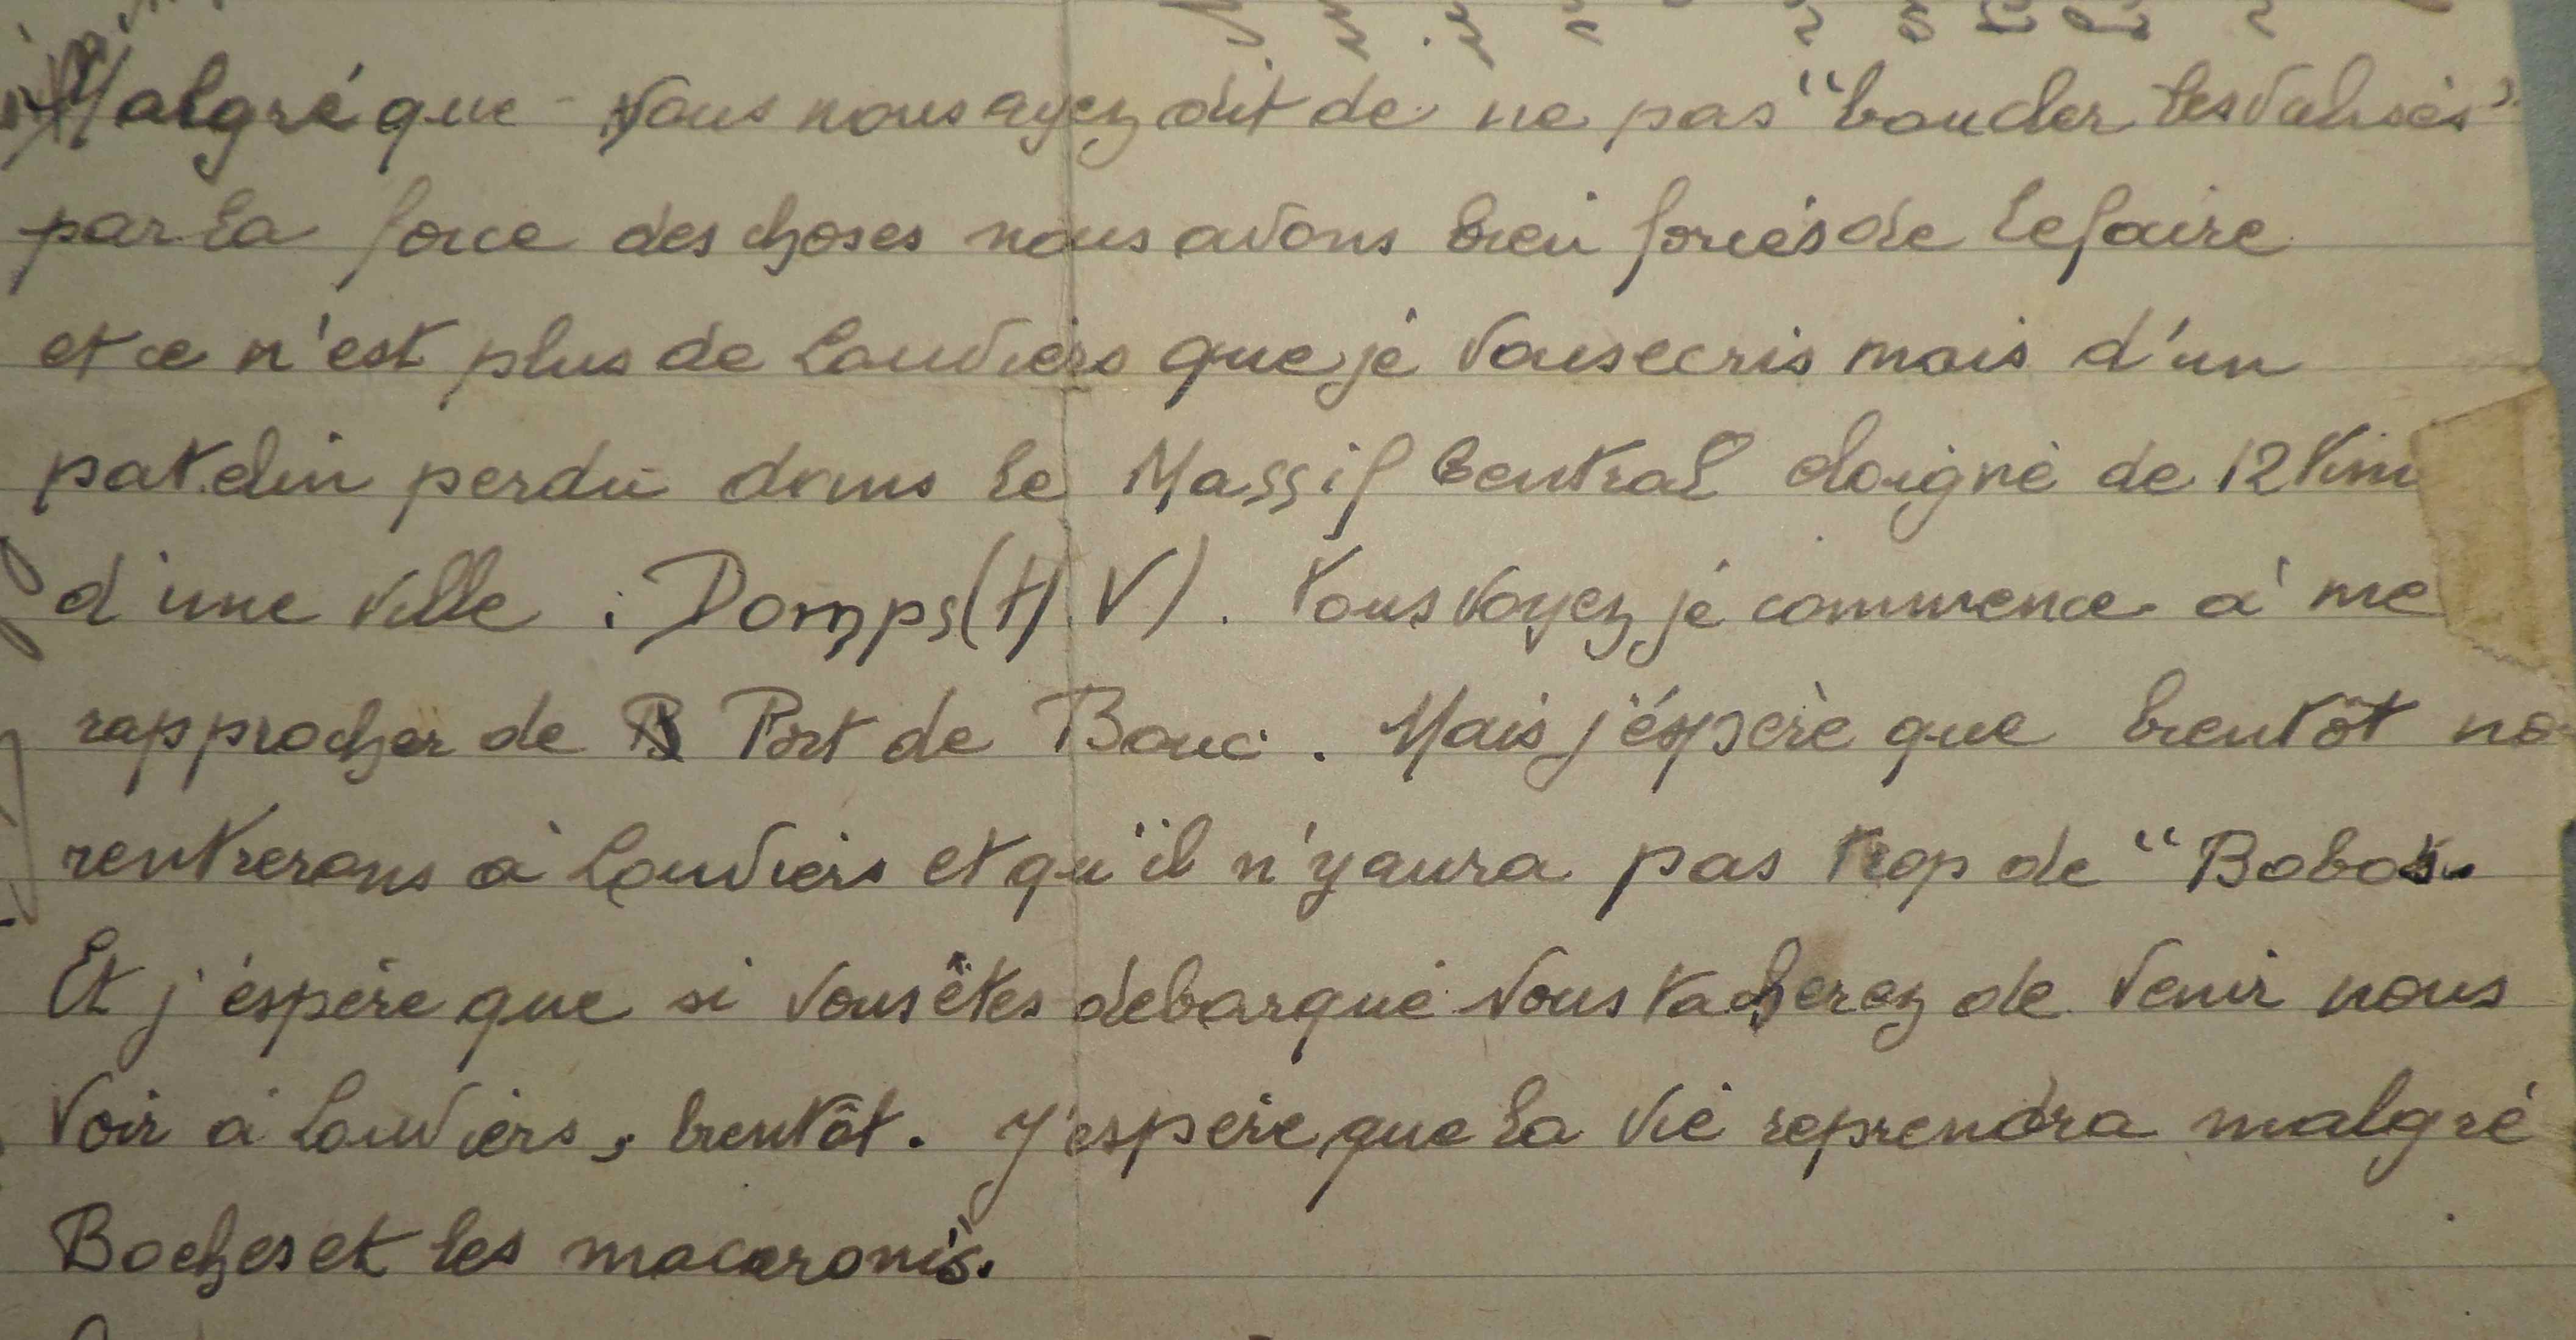 Malgré que vous nous ayez dit de ne pas "boucler les valises"
par la force des choses nous avons bien forcés de le faire
et ce n'est plus de Louviers que je vous ecris mais d'un
patelin perdu dans le Massif Central eloigné de 12 Km
d'une ville : Domps (H.V). Vous voyez je commence à me
rapprocher de Port de Bouc. Mais j'éspère que bientôt no
rentrerons à Louviers et qu'il n'y aura pas trop de "Bobos.
Et j'éspère que si vous êtes debarqué vous tacherez de venir nous
voir à Louviers, bientôt. J'espère que la vie reprendra malgré
Boches et les macaronis.